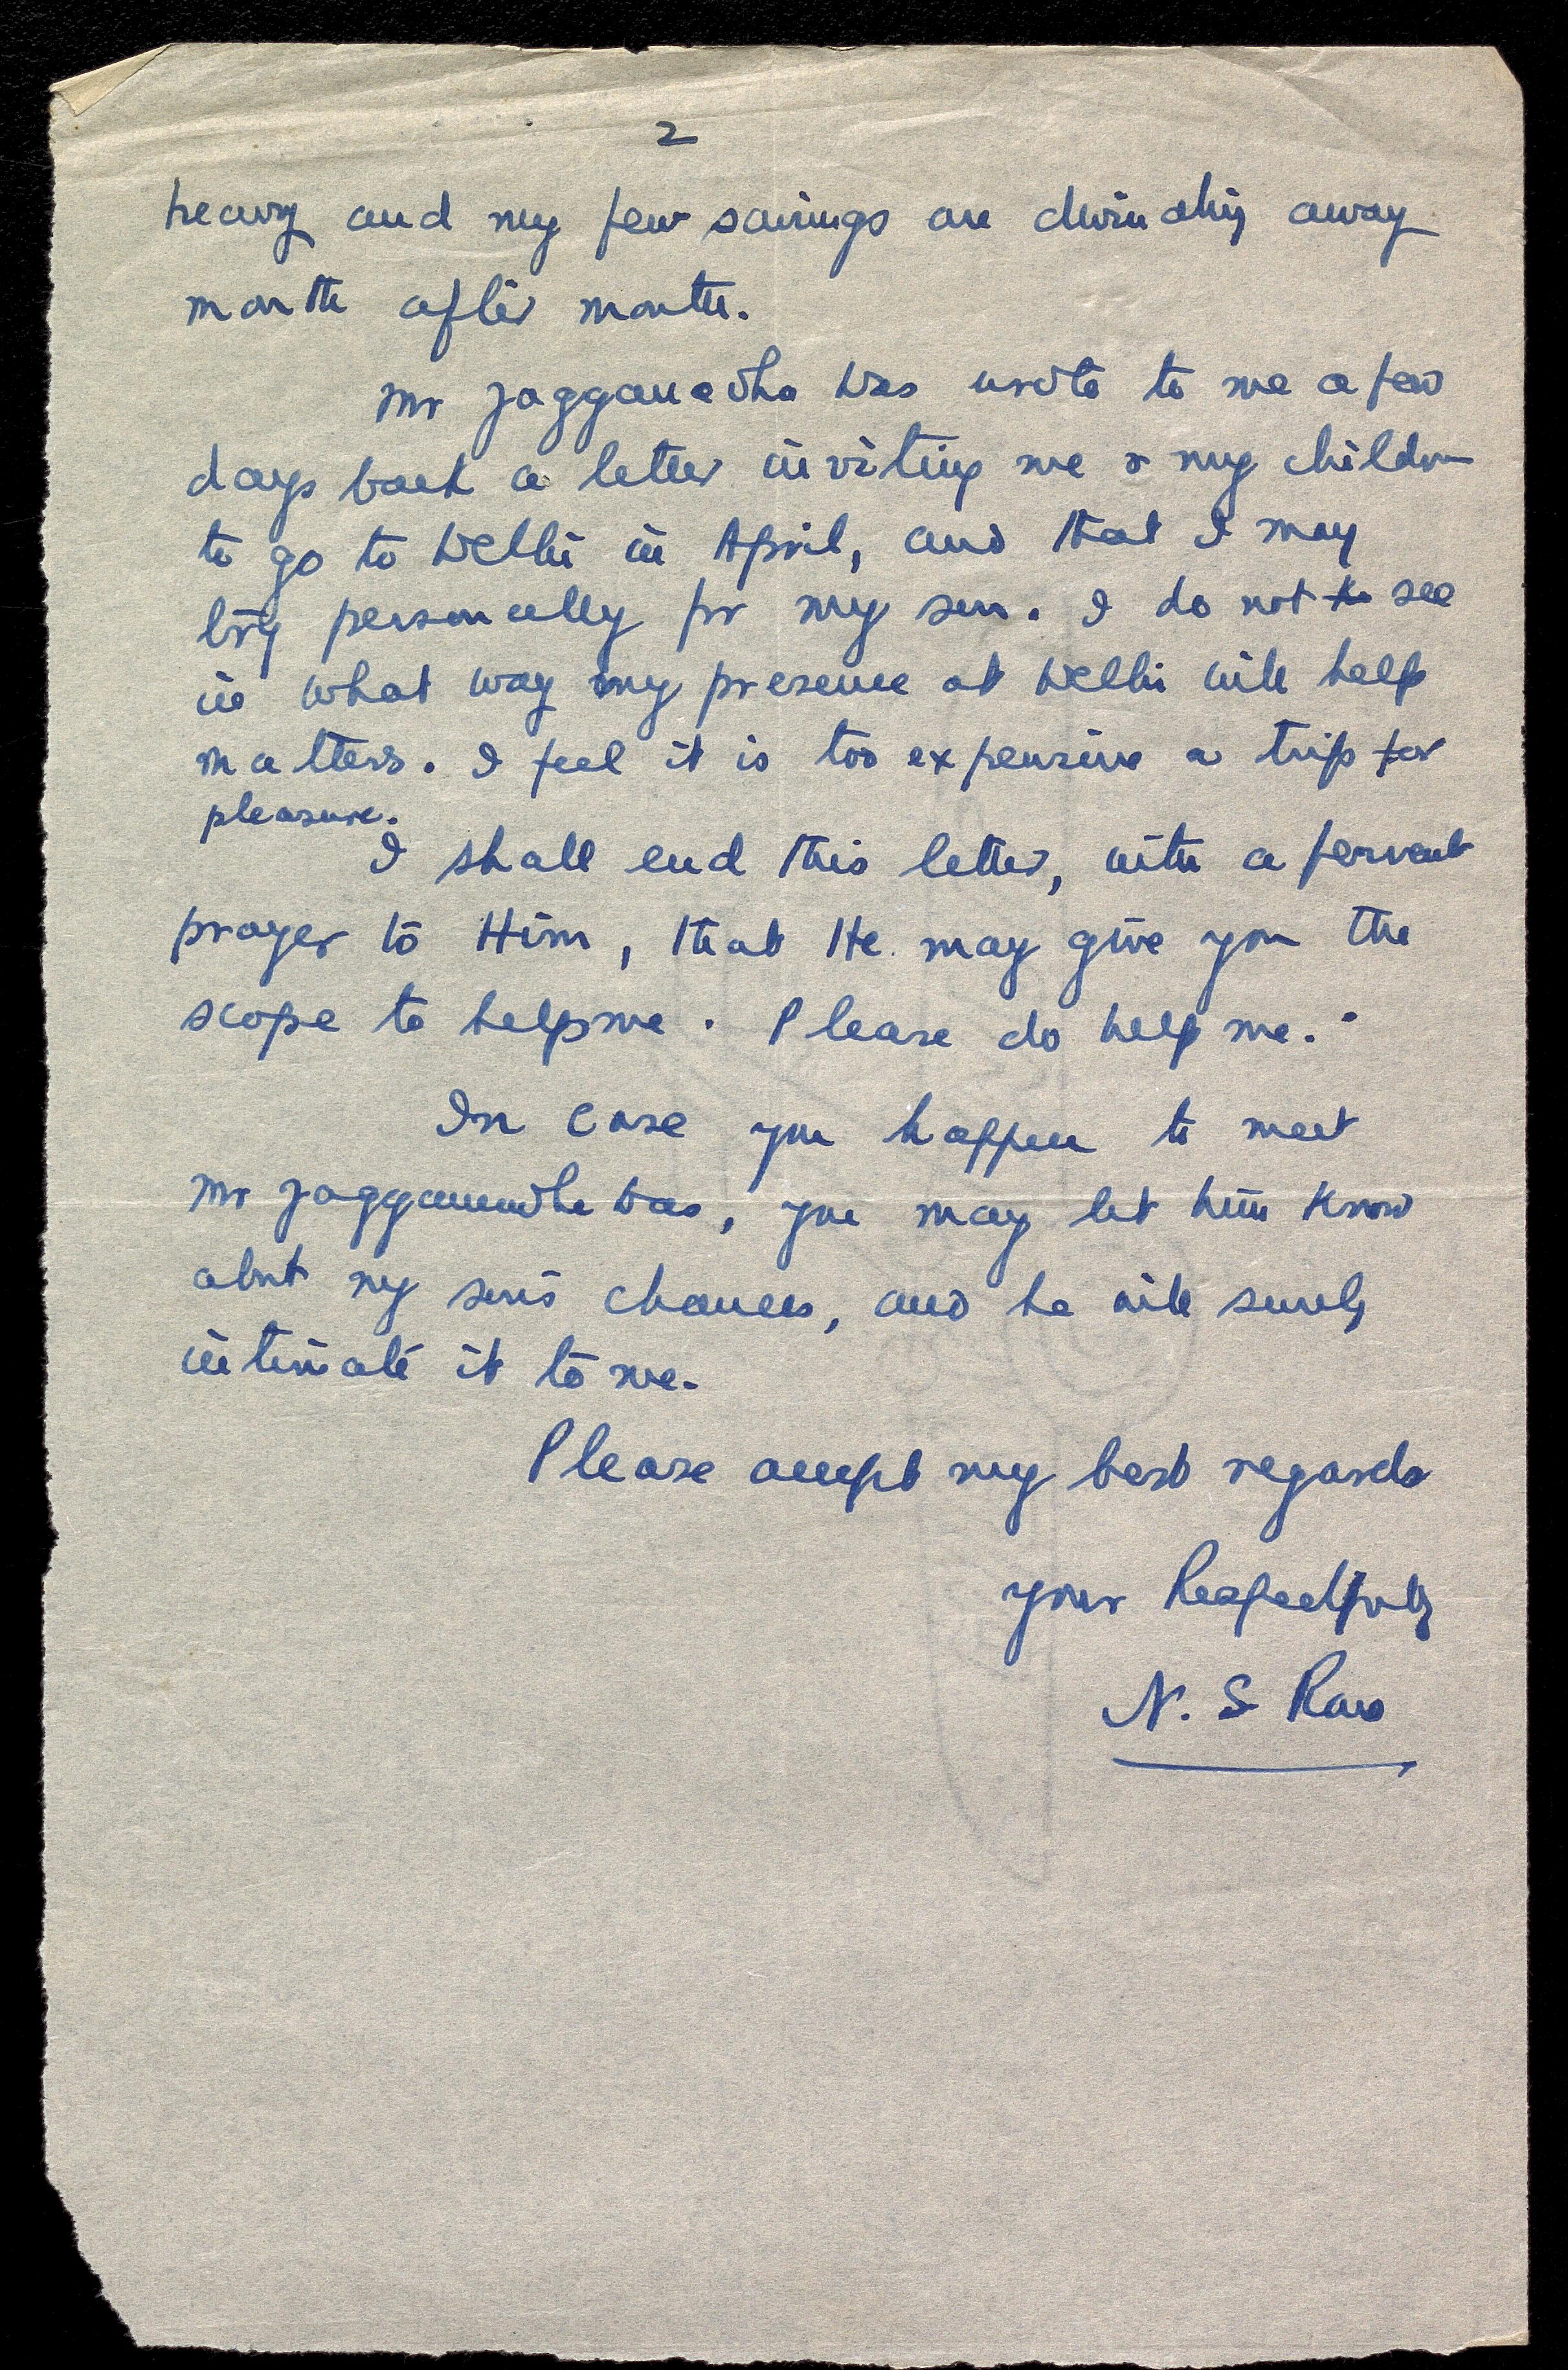 2
heavy and my few savings are dwindling away
month after month.
Mr Jagganadha Das wrote to me a few
days back a letter inviting me & my children
to go to Delhi in April, and that I may
try personally for my son. I do not to see
in what way my presence at Delhi will help
matters. I feel it is too expensive a trip for
pleasure.
I shall end this letter, with a fervent
prayer to Him, that He may give you the
scope to help me. Please do help me.
In case you happen to meet
Mr Jagganadha Das, you may let him know
about my son's chances, and he will surely
intimate it to me.
Please accept my best regards
your Respectfully
N. S Rao